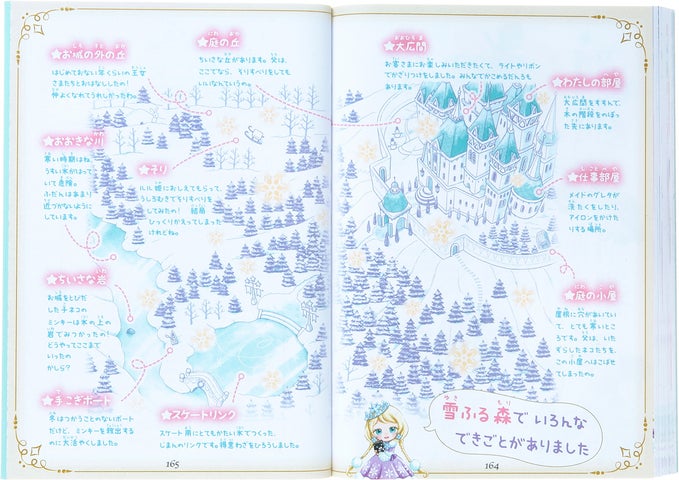 ★大広間
お客さまにお楽しみいただきたくて、ライトやリボン
でかざりつけをしました。みんなでかこめるだんろも
あります。
★わたしの部屋
大広間をすすんで、
木の階段をのぼっ
た先にあります。
★仕事部屋
メイドのグレタが
洗たくをしたり、
アイロンをかけた
りする場所。
★庭の小屋
屋根に穴があいてい
て、とても寒いとこ
ろです。父は、いた
ずらしたネコたちを、
この小屋へはこばせ
てしまったの。
雪ふる森でいろんな
できごとがありました
164
★庭の丘
ちいさな丘があります。父は、
ここでなら、そりすべりをしても
いいなんていうの。
★お城の外の丘
はじめておない年くらいの王女
さまたちとおはなししたの!
仲よくなれてうれしかったわ。
★おおきな川
寒い時期はね、
うすい氷がはって
いて危険。
ふだんはあまり
近づかないように
しています。
★そり
ルル姫におしえてもらって、
うしろむきでそりすべりを
してみたの! 結局
ひっくりかえってしまった
けれどね。
★ちいさな岩
お城をとびだ
した子ネコの
ミンキーは氷の上の
岩でみつかったの!
どうやってここまで
いったの
かしら?
★手こぎボート
冬はつかうことのないボート
だけど、ミンキーを救出する
のに大活やくしました。
★スケートリンク
スケート用にとてもかたい氷でつくった、
じまんのリンクです。得意わざをひろうしました。
165